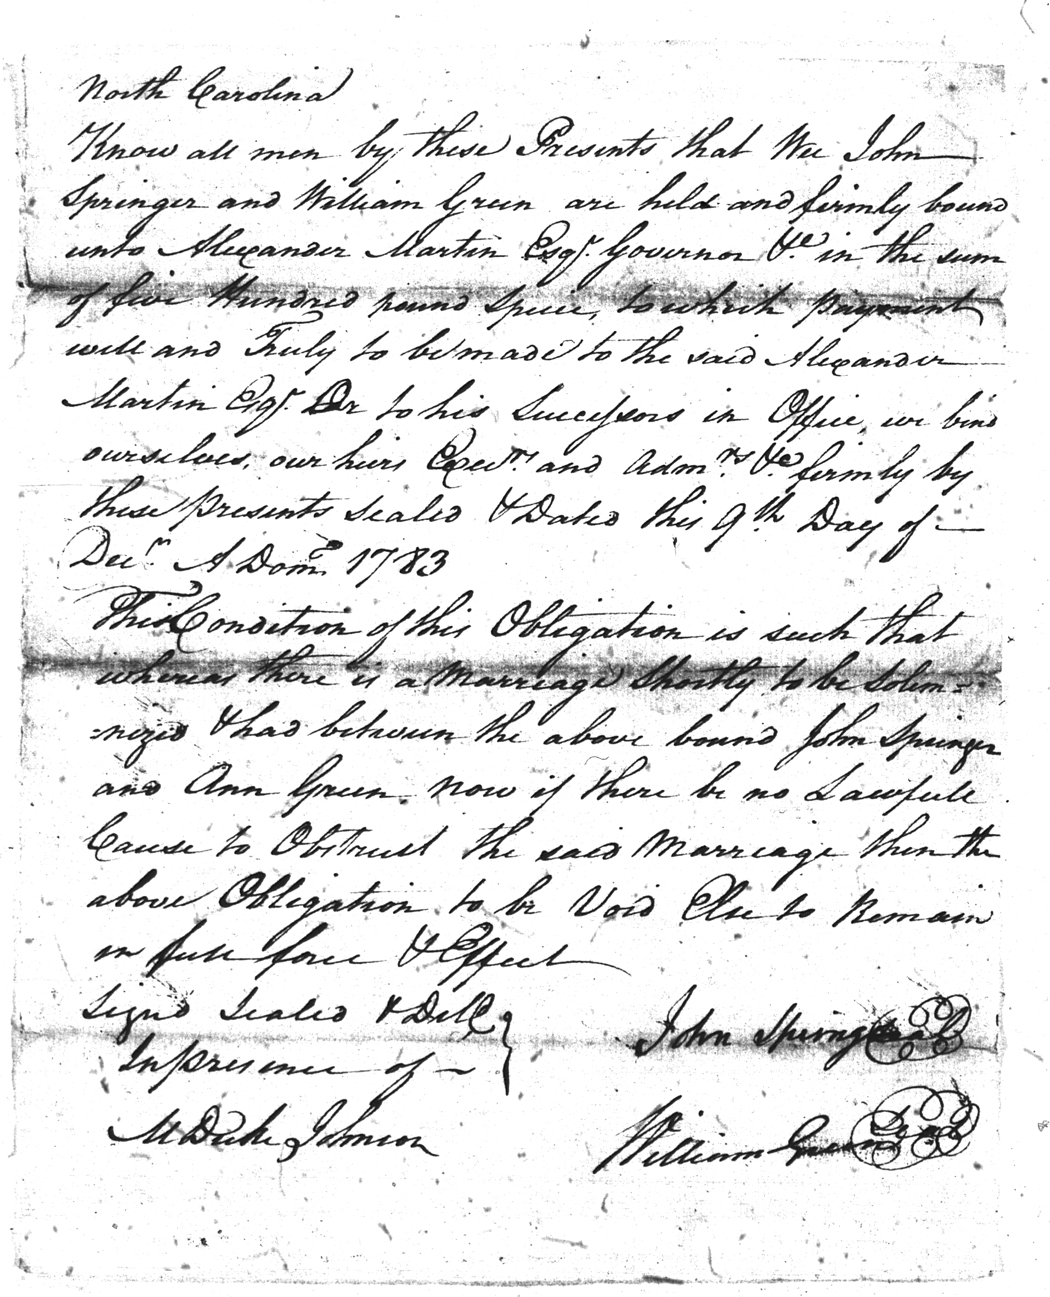 North Carolina
Know all men by these Presents that Wee John
Springer and William Green are held and firmly bound
unto Alexander Martin Esqr. Governor &c in the sum
of five Hundred pound Specie, to which payment
well and Truly to be made to the said Alexander
Martin Esqr. Or to his Successors in Office, we bind
ourselves, our heirs Execrs and Admrs &c firmly by
these presents sealed & Dated this 9th Day of
Decm. A Dom 1783
This Condition of this Obligation is such that
whereas there is a Marriage Shortly to be Solem=
=nized & had between the above bound John Springer
and Ann Green. Now if there be no Lawfull
Cause to Obstruct the said Marriage then the
above Obligation to be Void Else to Remain
in full force & Effect
Signd Sealed & Delle
In presence of
M Duke Johnson
John Springer
William Green